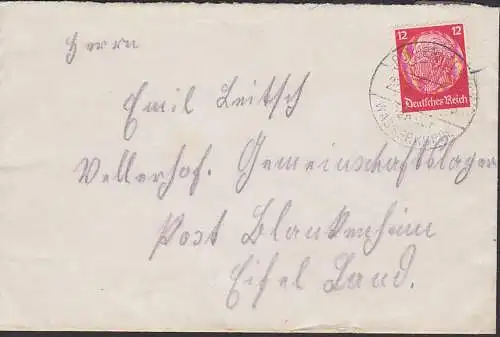 12 12
Deutsches Reich
Herrn
Emil Leitsch
Vellerhof. Gemeinschaftslager
Post Blankenheim
Eifel Land.